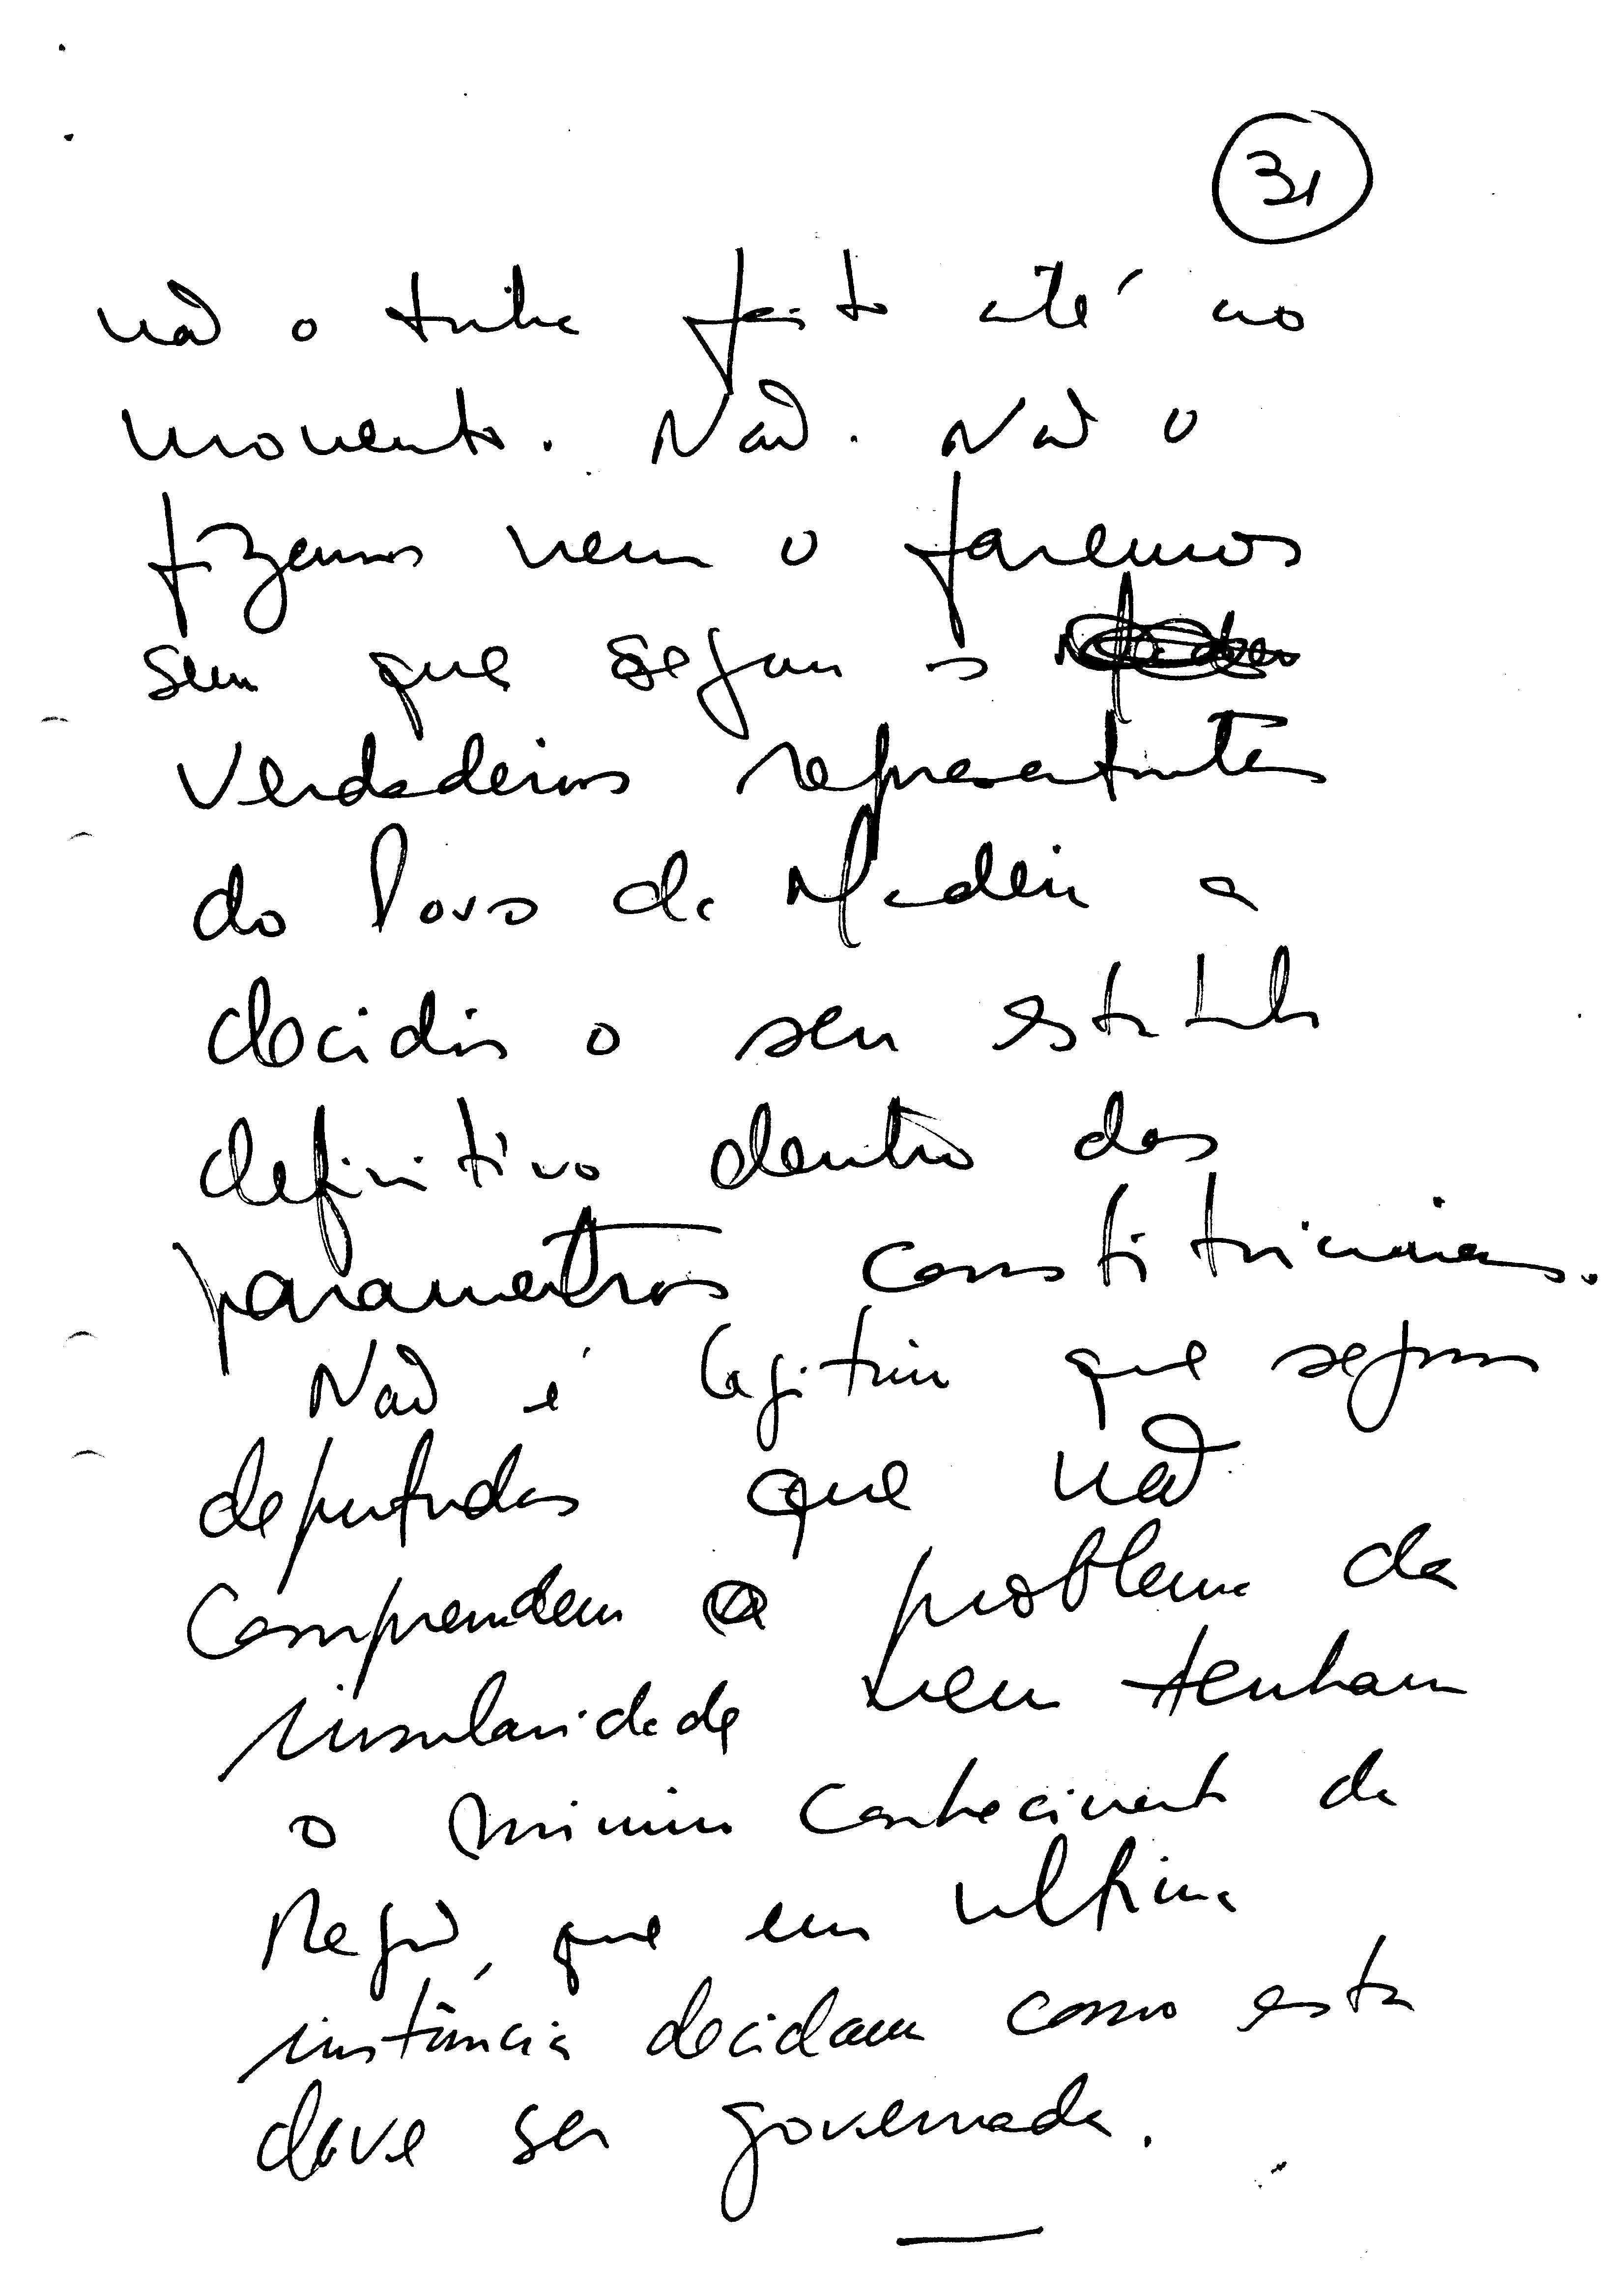 31
não o tinha feito até ao
momento. Não. Não o
fizemos nem o faremos
sem que sejam os
verdadeiros representantes
do Povo da Madeira a
decidir o seu estatuto
definitivo dentro dos
parametros constitucionais.
Não é legitimo que sejam
deputados que não
compreendem o problema da
insularidade nem tenham
o minimo conhecimento da
Região, que em ultima
instância decidam como esta
deve ser governada.